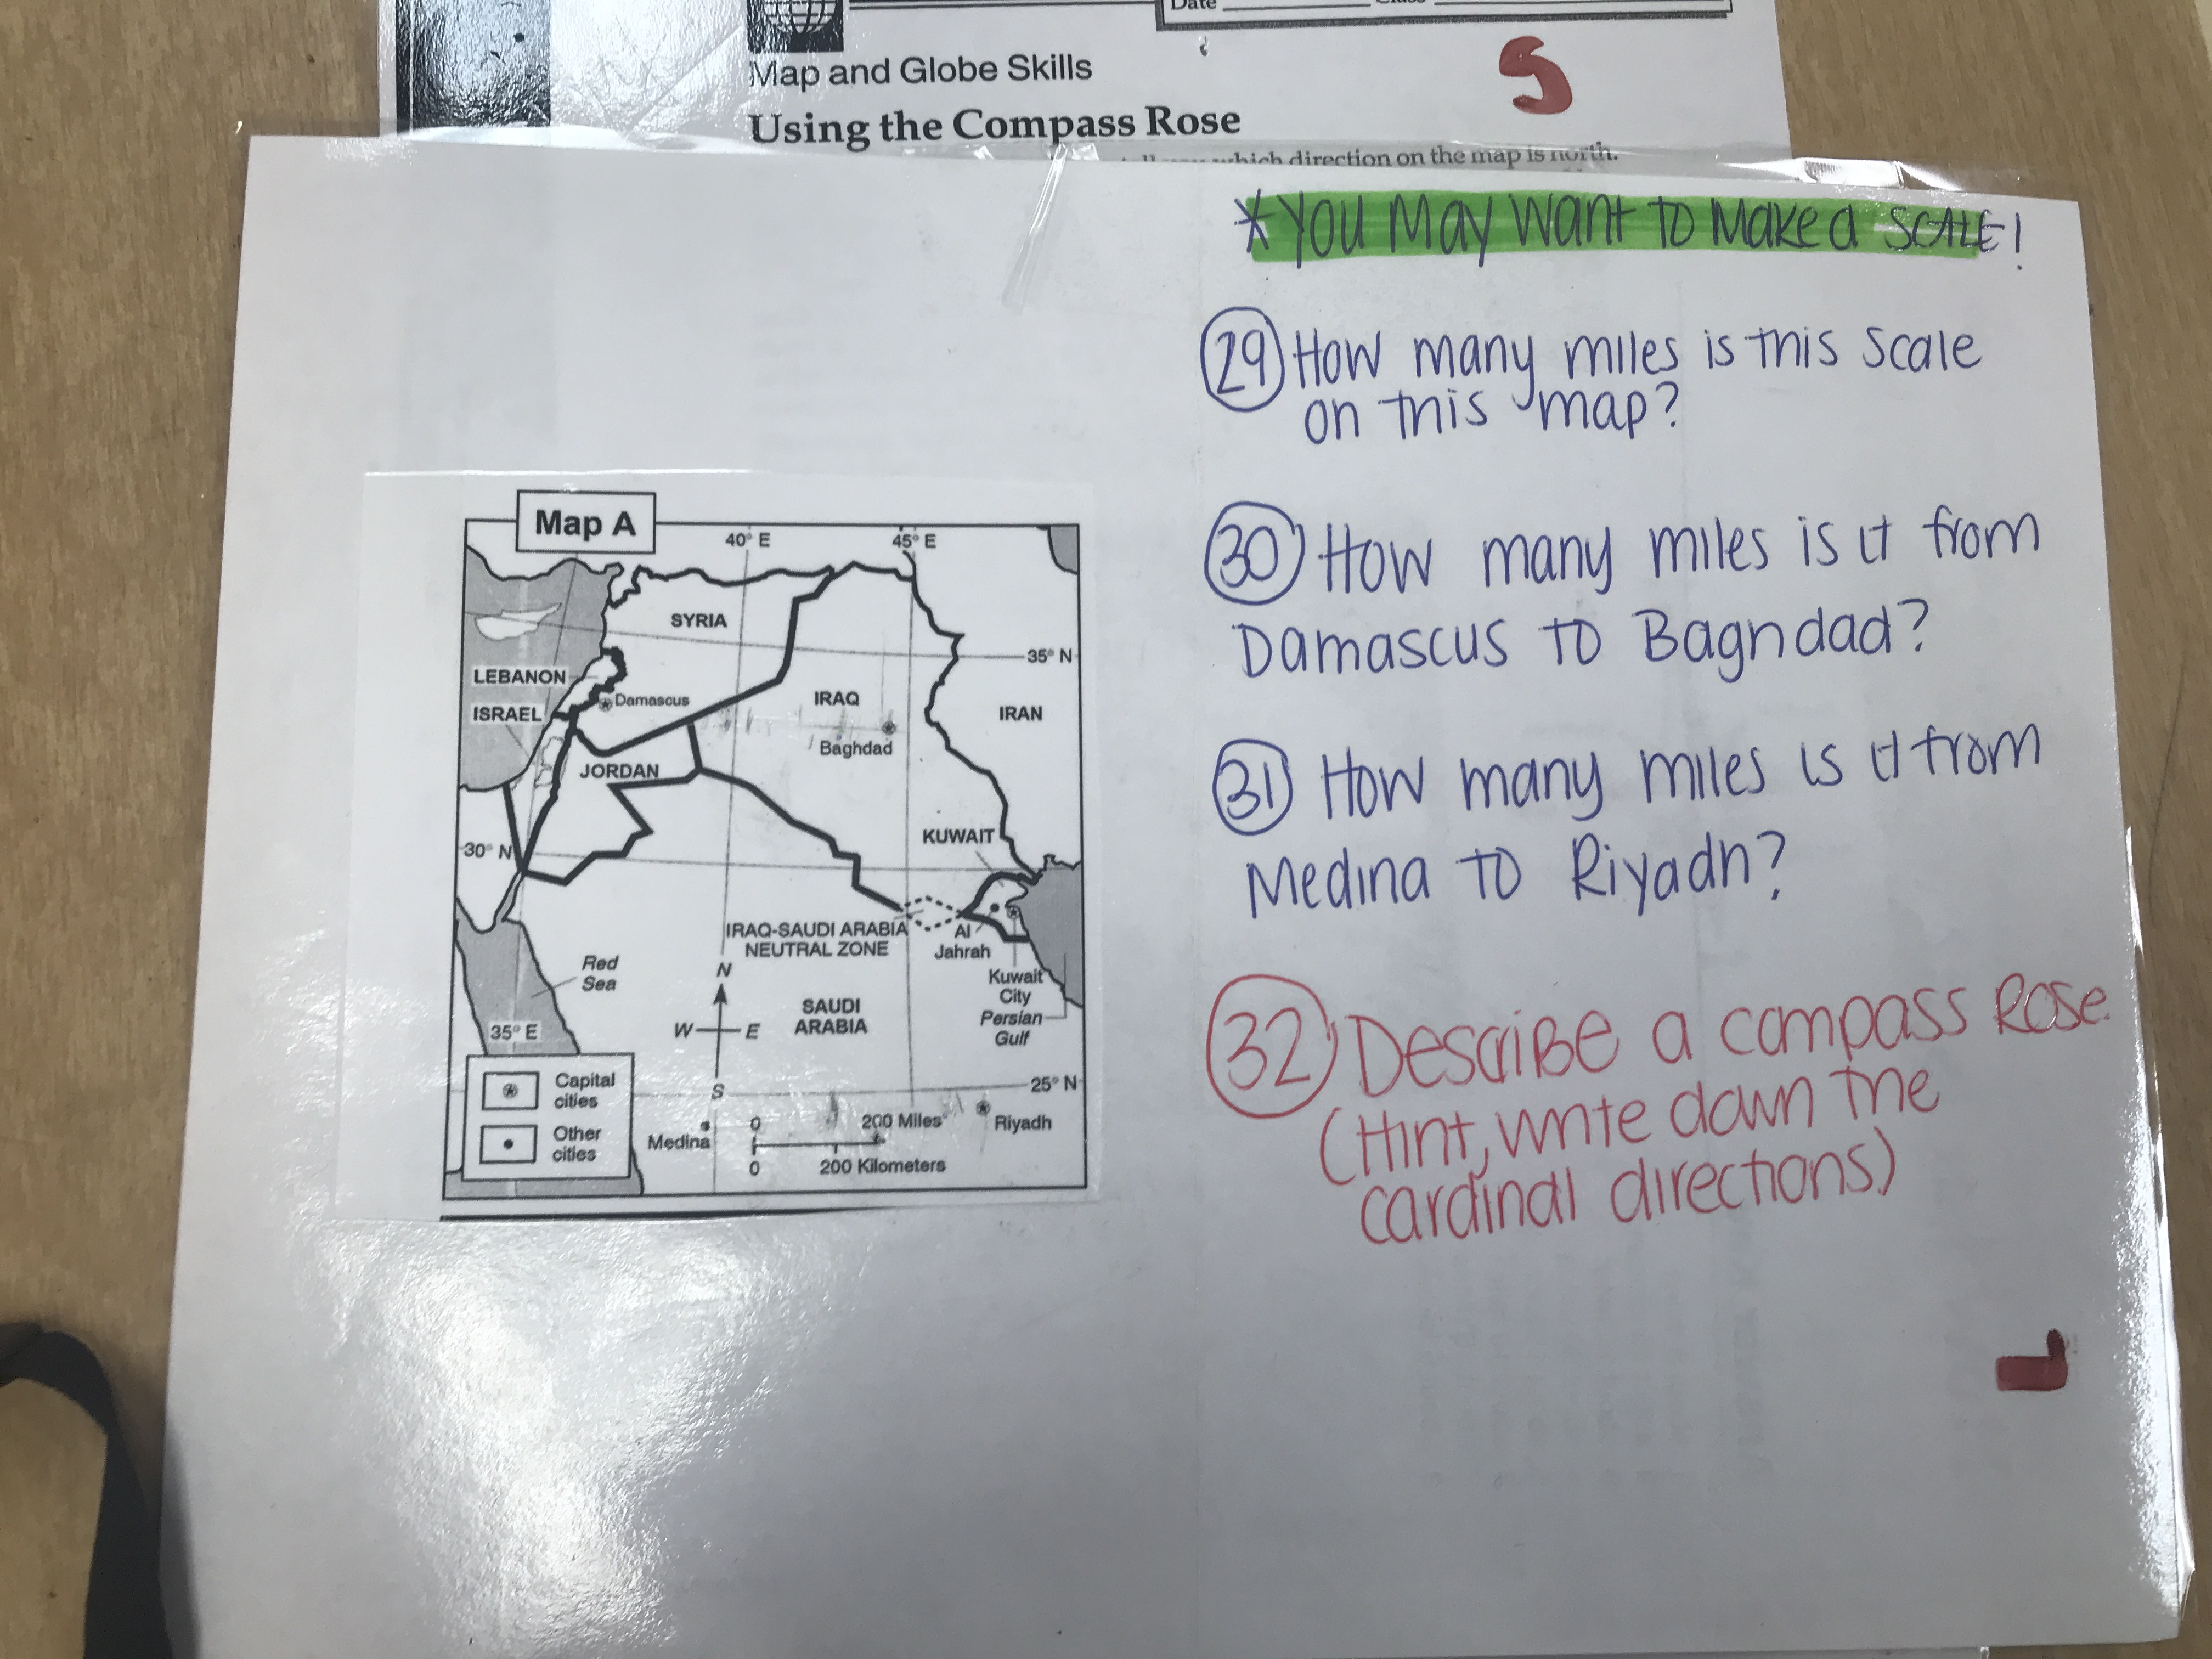 Date
Class
Map and Globe Skills
5
Using the Compass Rose
which direction on the map is north.
* You May Want to Make a SCALE!
29 How many miles is this scale
on this map?
30 How many miles is it from
Damascus to Baghdad?
31 How many miles is it from
Medina to Riyadh?
32 Describe a compass Rose.
(Hint, write down the
cardinal directions)
Map A
40° E
45° E
SYRIA
35° N
LEBANON
Damascus
ISRAEL
IRAQ
IRAN
Baghdad
JORDAN
KUWAIT
30° N
IRAQ-SAUDI ARABIA
NEUTRAL ZONE
Al
Jahrah
Red
Sea
N
Kuwait
City
W
E
SAUDI
ARABIA
Persian
Gulf
35° E
S
25° N
Capital
cities
Other
cities
Medina
0
200 Miles
Riyadh
0
200 Kilometers